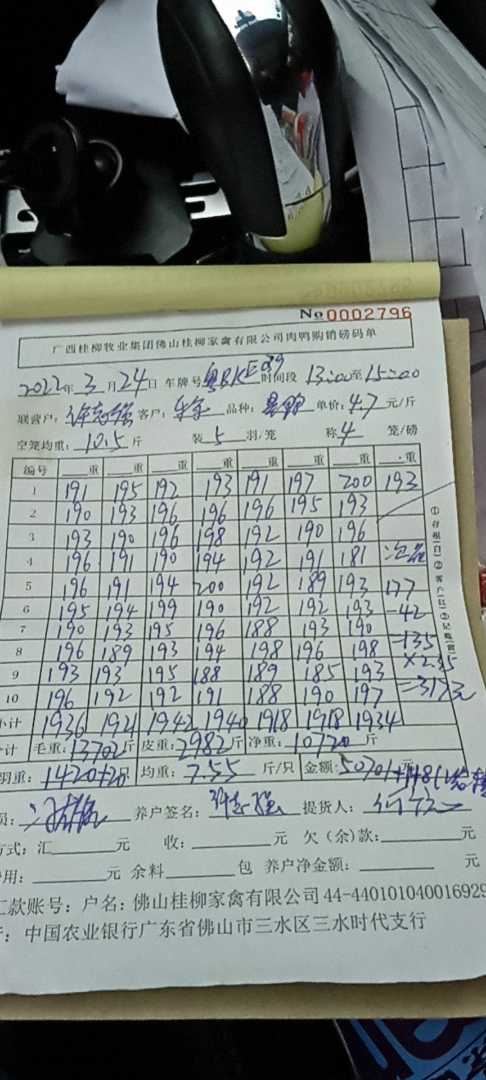 No 0002796
广西桂柳牧业集团佛山桂柳家禽有限公司肉鸭购销磅码单
2022年 3月 24日 车牌号 粤BKE 时间段 13:00至15:00
联营户: 客户: 品种: 单价: 4.7 元/斤
空笼均重: 10.5 斤 装 5 羽/笼 称 4 笼/磅
编号 重 重 重 重 重 重 重 重
1 191 195 192 193 191 197 200 193
2 190 193 196 196 196 195 193
3 193 190 196 198 192 190 196
4 196 191 190 194 192 191 181
5 196 191 194 200 192 189 193 177
6 195 194 199 190 192 192 193 -42
7 190 193 195 196 188 193 190 =135
8 196 189 193 194 198 196 198 ×2.35
9 193 193 195 188 189 185 193 =317元
10 196 192 192 191 188 190 197
小计 1936 1921 1942 1940 1918 1918 1934
合计 毛重: 13702斤 皮重: 2982斤 净重: 10720斤
羽重: 1420+20 均重: 7.55 斤/只 金额: 50701 元
员: 养户签名: 提货人:
方式: 汇 元 收: 元 欠(余)款: 元
费用: 元 余料 包 养户净金额: 元
汇款账号: 户名: 佛山桂柳家禽有限公司 44-440101040016929
行: 中国农业银行广东省佛山市三水区三水时代支行
①存根(白)②客户(红)③